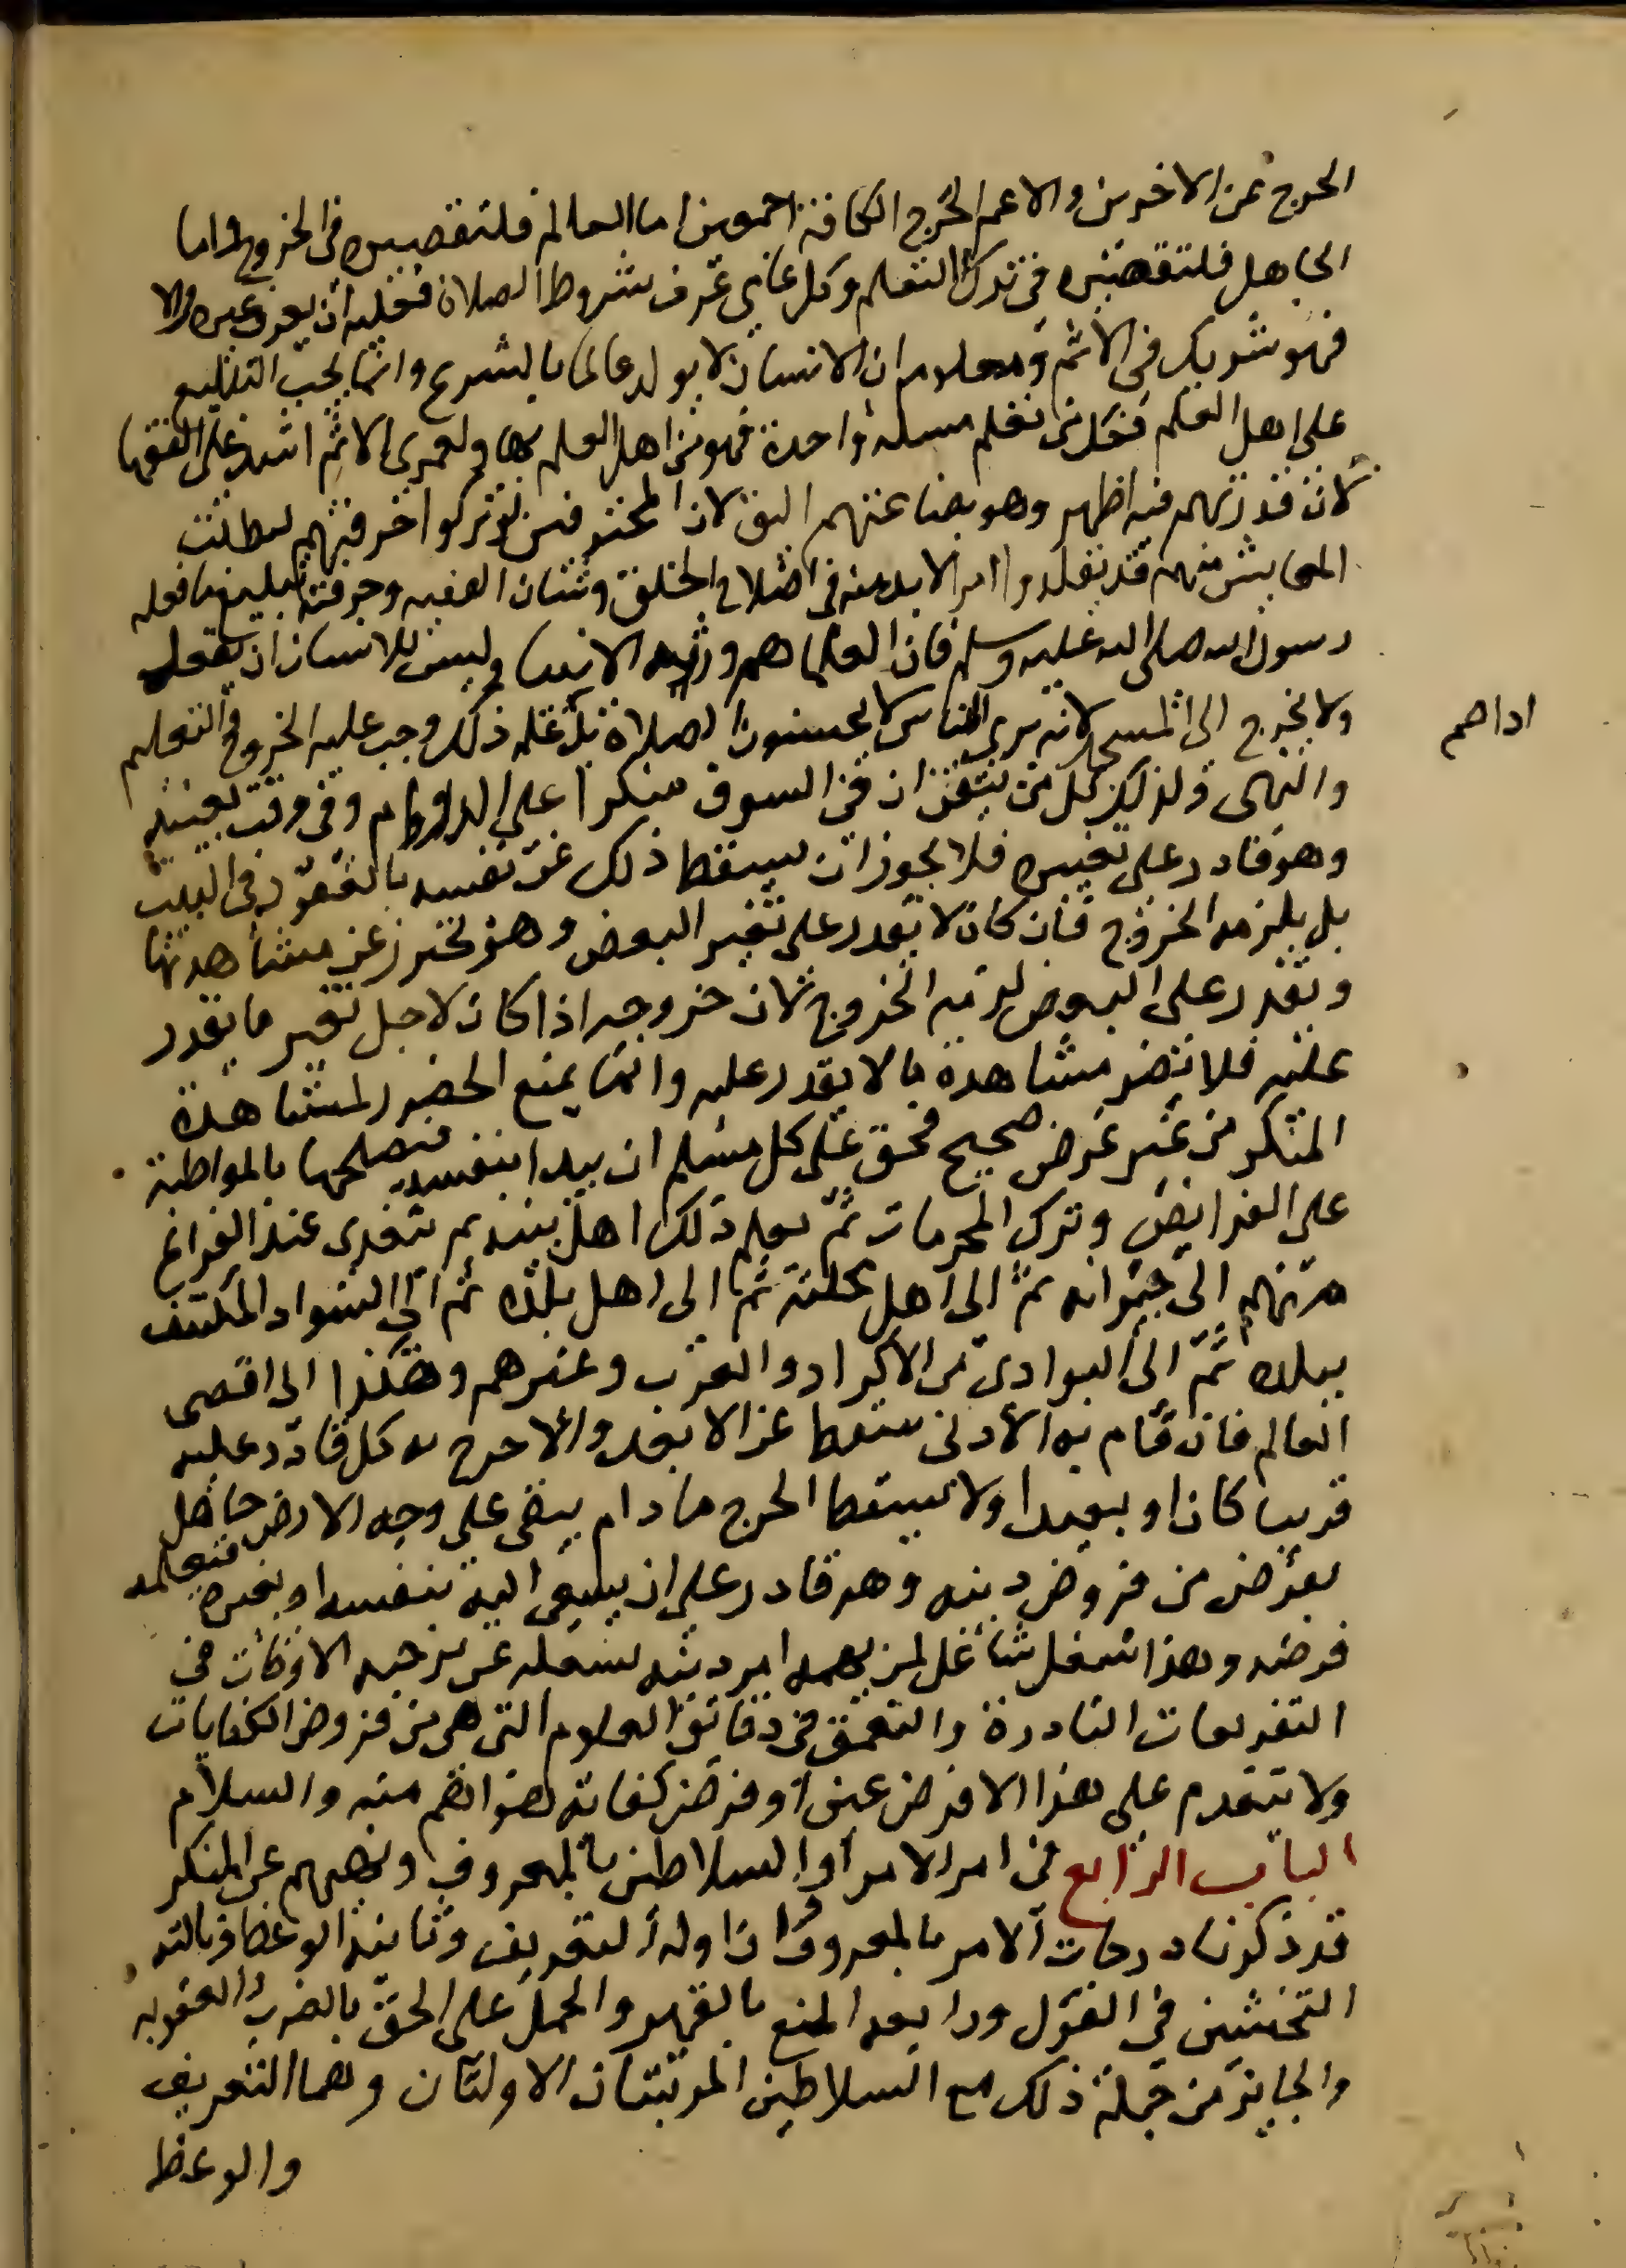 الحرج عن الاخرين والا عم الحرج الكافة اجمعين اما العالم فلتقصيره في الخروج واما
الجاهل فلتقصيره في ترك التعلم وكل عامي عرف شروط الصلاة فعليه ان يعرف غيره والا
فهو شريك في الاثم ومعلوم ان الانسان لا يولد عالما بالشرع وانما يجب التبليغ
على اهل العلم فكل من تعلم مسلة واحدة فهو من اهل العلم بها ولعمري الاثم اشد على الفقها
لان قدرتهم فيه اظهر وهو بصناعتهم اليق لان المحترفين لو تركوا حرفتهم لبطلت
المعايش فهم قد تقلدوا امرا لا بد منه في اصلاح الخلق وشان الفقيه وحرفته تبليغ ما بلغه
رسول الله صلى الله عليه وسلم فان العلما هم ورثة الانبيا وليس للانسان ان يقعد
ولا يخرج الى المسجد لانه يرى الناس لا يحسنون الصلاة بل اذا علم ذلك وجب عليه الخروج للتعليم
والنهي وكذلك كل من تيقن ان في السوق منكرا على الدوام وفي وقت بعينه
وهو قادر على تغييره فلا يجوز ان يسقط ذلك عن نفسه بالقعود في البيت
بل يلزمه الخروج فان كان لا يقدر على تغيير البعض وهو محترز عن مشاهدتها
ويقدر على البعض لزمه الخروج لان خروجه اذا كان لاجل تغيير ما يقدر
عليه فلا تضر مشاهدة ما لا يقدر عليه وانما يمنع الحضور لمشاهدة
المنكر من غير غرض صحيح فحق على كل مسلم ان يبدا بنفسه فيصلحها بالمواظبة
على الفرايض وترك المحرمات ثم يعلم ذلك اهل بيته ثم يتعدى عند الفراغ
منهم الى جيرانه ثم الى اهل محلته ثم الى اهل بلده ثم الى السواد المكتنف
ببلده ثم الى البوادي من الاكراد والعرب وغيرهم وهكذا الى اقصى
العالم فان قام به الادنى سقط عن الابعد والا حرج به كل قادر عليه
قريبا كان او بعيدا ولا يسقط الحرج ما دام يبقى على وجه الارض جاهل
بفرض من فروض دينه وهو قادر على ان يسعى اليه بنفسه او بغيره فيعلمه
فرضه وهذا شغل شاغل لمن يهمه امر دينه يشغله عن تزجية الاوقات في
التفريعات النادرة والتعمق في دقائق العلوم التي هي من فروض الكفايات
ولا يتقدم على هذا الا فرض عين او فرض كفاية هو اهم منه والسلام
الباب الرابع في امر الامرا والسلاطين بالمعروف ونهيهم عن المنكر
قد ذكرنا درجات الامر بالمعروف وان اوله التعريف وثانيه الوعظ وثالثه
التخشين في القول ورابعه المنع بالقهر والحمل على الحق بالضرب والعقوبه
والجايز من جملة ذلك مع السلاطين المرتبتان الاولتان وهما التعريف
والوعظ
اداهم